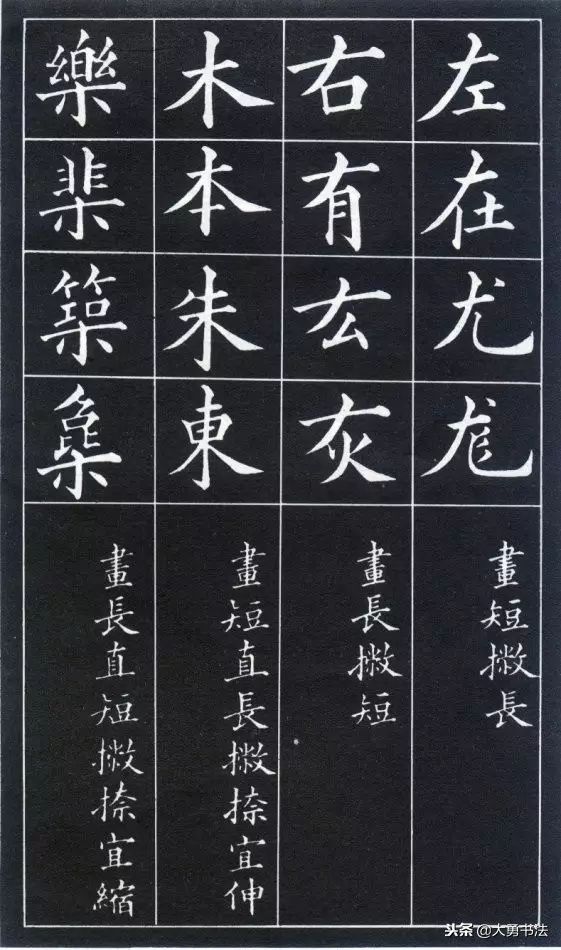 左在尤尨
畫短撇長
右有厷灰
畫長撇短
木本朱東
畫短直長撇捺宜伸
樂棐築
畫長直短撇捺宜縮
头条 @大勇书法